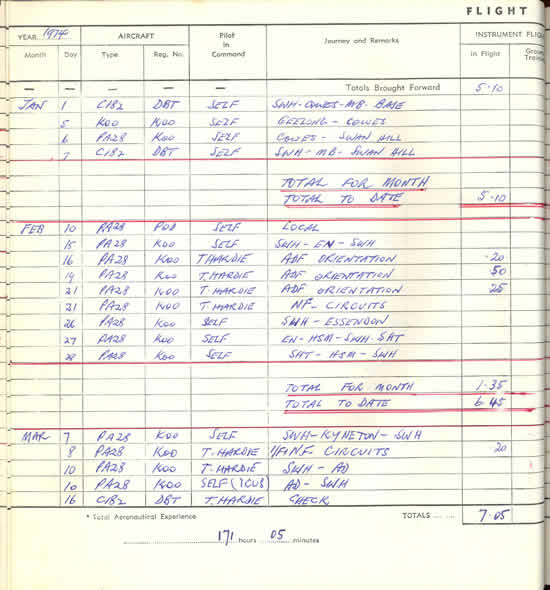 FLIGHT
YEAR 1974 AIRCRAFT Pilot in Command Journey and Remarks INSTRUMENT FLIG
Month Day Type Reg. No. In Flight Groun Trainin
— — — — — Totals Brought Forward 5·10
JAN 1 C182 DBT SELF SWH-COWES-MB- BASE
5 KOO KOO SELF GEELONG - COWES
6 PA28 KOO SELF COWES - SWAN HILL
7 C182 DBT SELF SWH-MB-SWAN HILL
TOTAL FOR MONTH
TOTAL TO DATE 5·10
FEB 10 PA28 SELF LOCAL
15 PA28 KOO SELF SWH-EN-SWH
16 PA28 KOO T HARDIE ADF ORIENTATION ·20
19 PA28 KOO T. HARDIE ADF ORIENTATION 50
21 PA28 KOO T. HARDIE ADF ORIENTATION 25
21 PA28 KOO T. HARDIE NF- CIRCUITS
26 PA28 KOO SELF SWH-ESSENDON
27 PA28 KOO SELF EN-HSM-SWH-SHT
28 PA28 KOO SELF SHT-HSM-SWH
TOTAL FOR MONTH 1·35
TOTAL TO DATE 6·45
MAR 7 PA28 KOO SELF SWH-KYNETON-SWH
8 PA28 KOO T. HARDIE CIRCUITS 20
10 PA28 KOO T. HARDIE SWH-AD
10 PA28 KOO SELF (ICUS) AD-SWH
16 C182 DBT T. HARDIE CHECK
* Total Aeronautical Experience TOTALS ... ... 7·05
171 hours 05 minutes